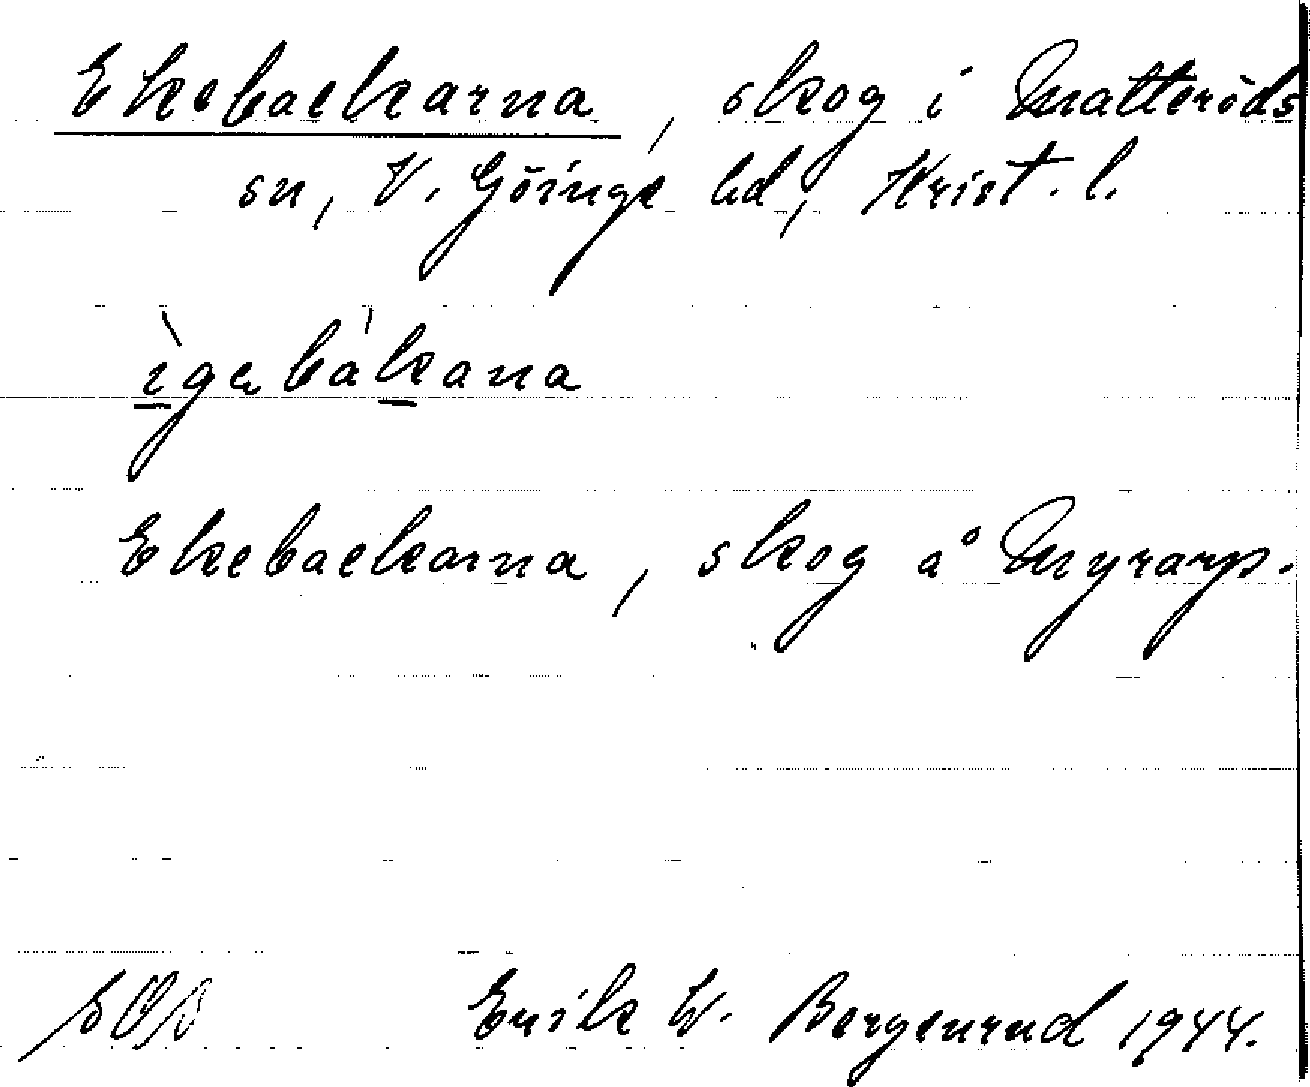 Ekebackarna, skog i Matteröds
sn, V. Göinge hd, Krist. l.
ìgabàkana
Ekebackarna, skog å Myrarp.
Erik W. Bergenrud 1944.